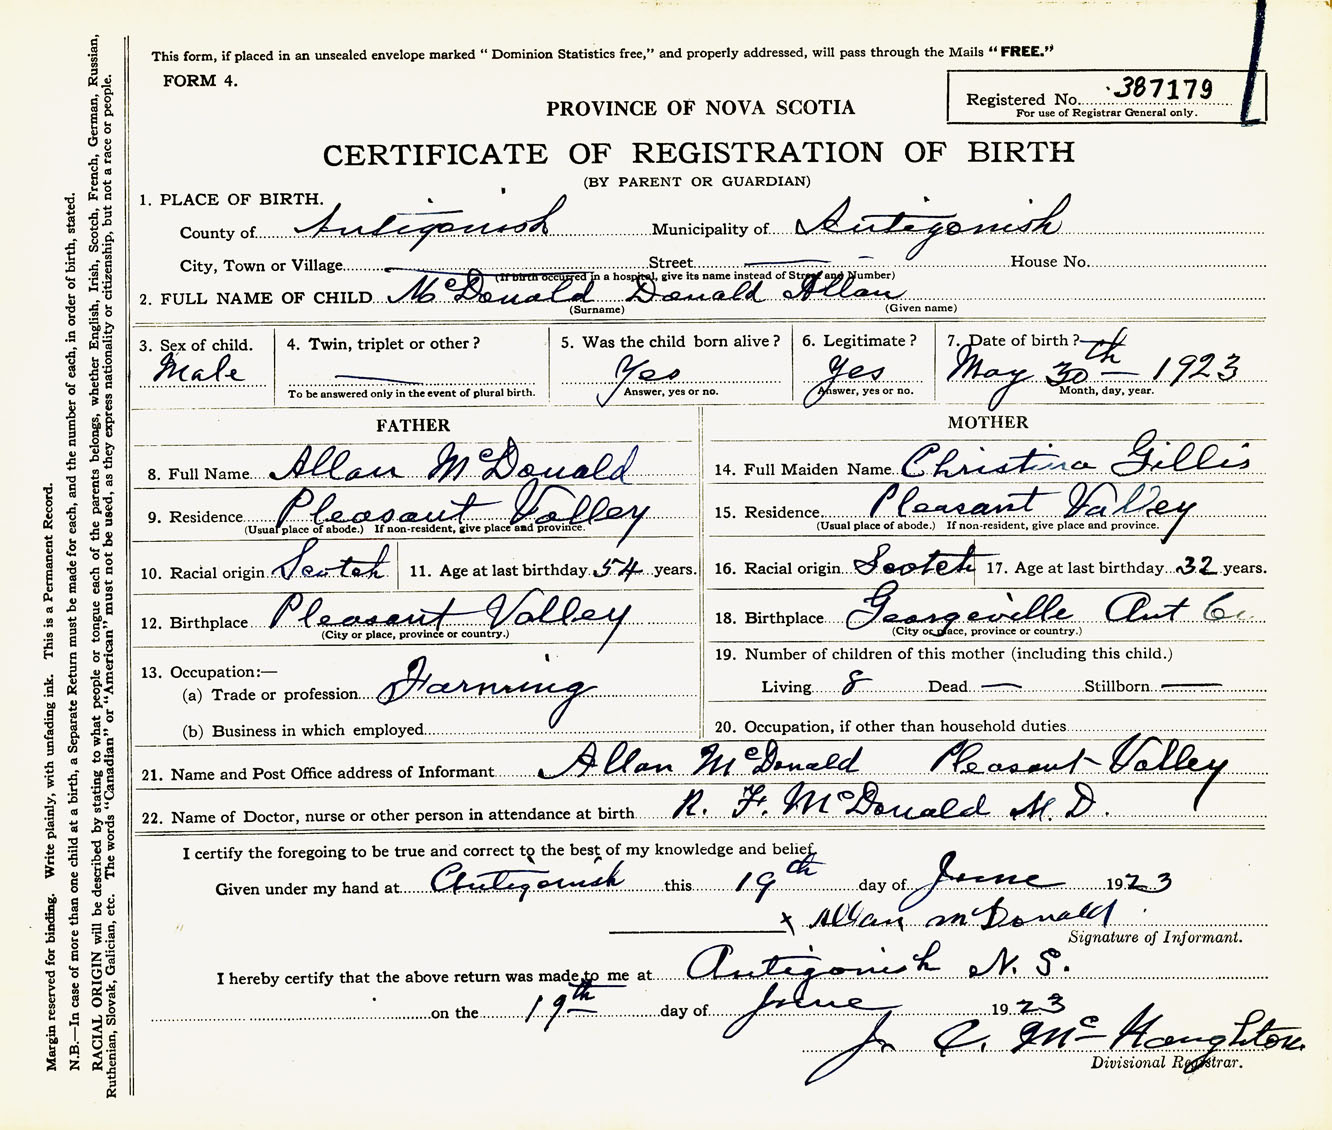 This form, if placed in an unsealed envelope marked “ Dominion Statistics free,” and properly addressed, will pass through the Mails “FREE.”
FORM 4.
Registered No. 387179
For use of Registrar General only.
PROVINCE OF NOVA SCOTIA
CERTIFICATE OF REGISTRATION OF BIRTH
(BY PARENT OR GUARDIAN)
1. PLACE OF BIRTH.
County of Antigonish Municipality of Antigonish
City, Town or Village Street House No.
(If birth occurred in a hospital, give its name instead of Street and Number)
2. FULL NAME OF CHILD McDonald Donald Allan
(Surname) (Given name)
3. Sex of child. 4. Twin, triplet or other? 5. Was the child born alive? 6. Legitimate? 7. Date of birth?
Male — Yes Yes May 30th 1923
To be answered only in the event of plural birth. Answer, yes or no. Answer, yes or no. Month, day, year.
FATHER MOTHER
8. Full Name Allan McDonald 14. Full Maiden Name Christina Gillis
9. Residence Pleasant Valley 15. Residence Pleasant Valley
(Usual place of abode.) If non-resident, give place and province. (Usual place of abode.) If non-resident, give place and province.
10. Racial origin Scotch 11. Age at last birthday 54 years. 16. Racial origin Scotch 17. Age at last birthday 32 years.
12. Birthplace Pleasant Valley 18. Birthplace Georgeville Ant Co.
(City or place, province or country.) (City or place, province or country.)
13. Occupation:— 19. Number of children of this mother (including this child.)
(a) Trade or profession Farming Living 8 Dead — Stillborn —
(b) Business in which employed 20. Occupation, if other than household duties
21. Name and Post Office address of Informant Allan McDonald Pleasant Valley
22. Name of Doctor, nurse or other person in attendance at birth R. F. McDonald M. D.
I certify the foregoing to be true and correct to the best of my knowledge and belief.
Given under my hand at Antigonish this 19th day of June 1923
x Allan McDonald
Signature of Informant.
I hereby certify that the above return was made to me at Antigonish N. S.
on the 19th day of June 1923
J. C. Mc Naughton
Divisional Registrar.
Margin reserved for binding. Write plainly, with unfading ink. This is a Permanent Record.
N.B.—In case of more than one child at a birth, a Separate Return must be made for each, and the number of each, in order of birth, stated.
RACIAL ORIGIN will be described by stating to what people or tongue each of the parents belongs, whether English, Irish, Scotch, French, German, Russian,
Ruthenian, Slovak, Galician, etc. The words “Canadian” or “American” must not be used, as they express nationality or citizenship, but not a race or people.